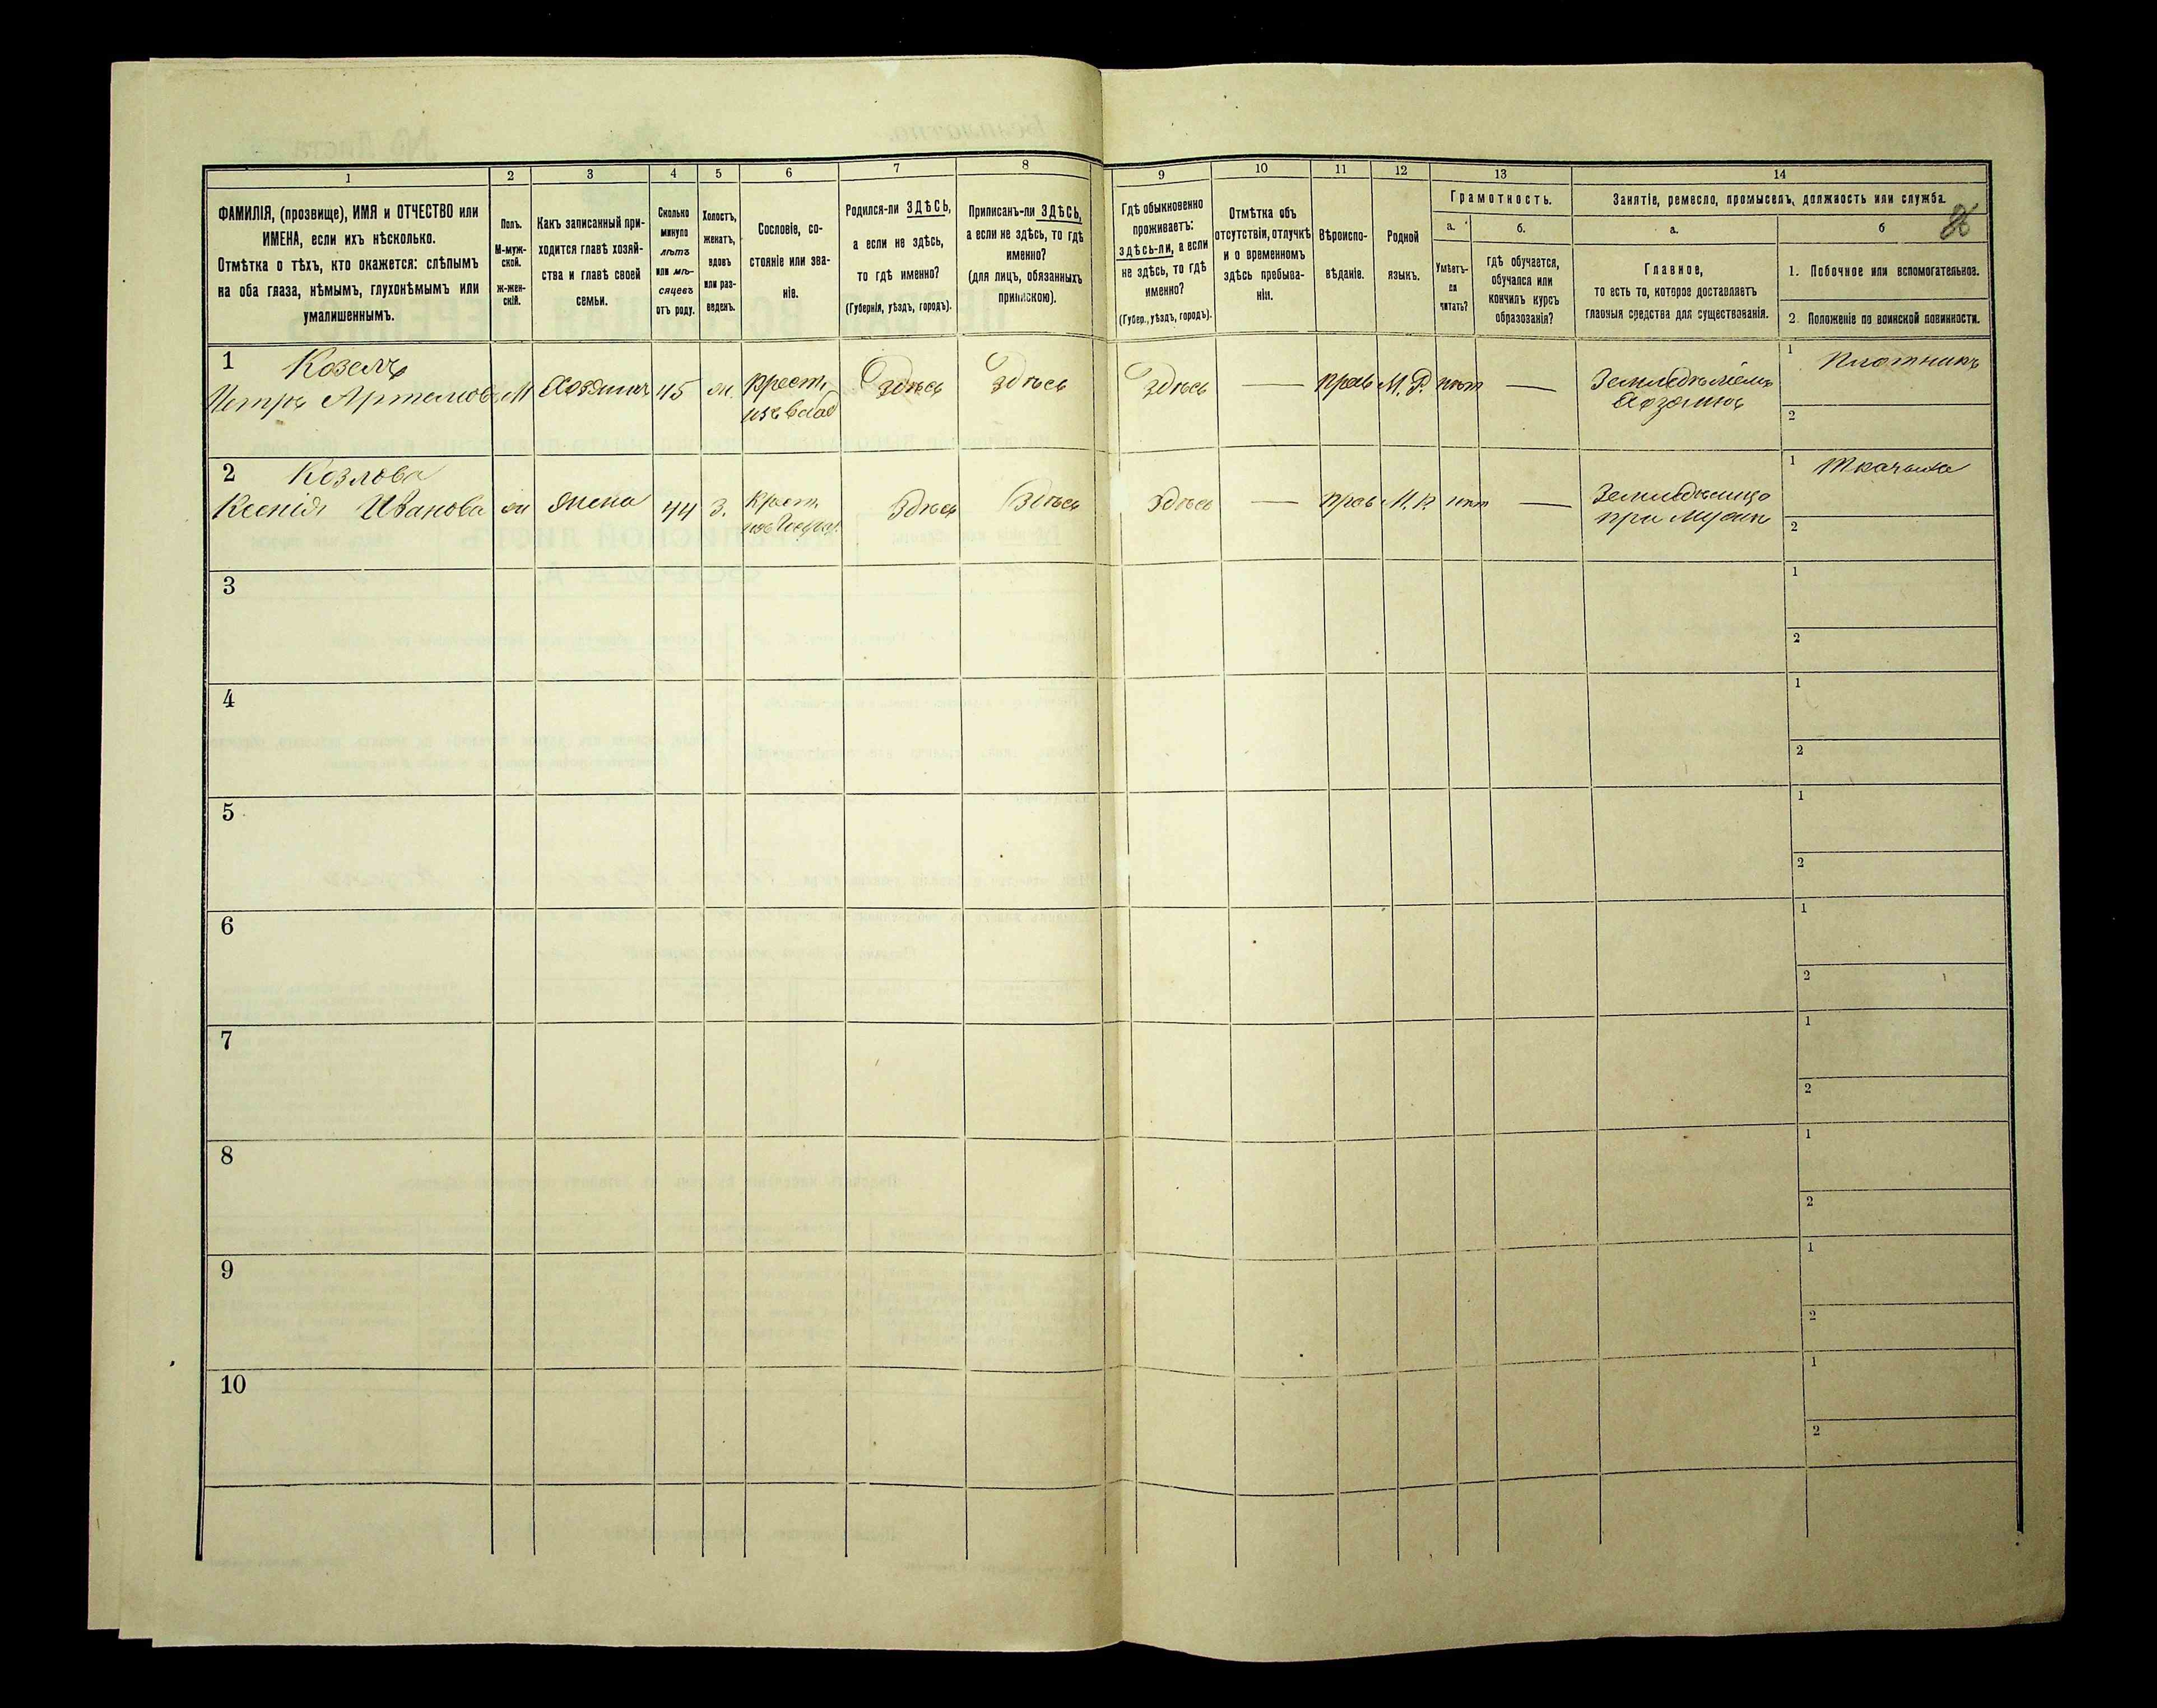 1 2 3 4 5 6 7 8 9 10 11 12 13 14
ФАМИЛІЯ, (прозвище), ИМЯ и ОТЧЕСТВО или
ИМЕНА, если ихъ нѣсколько.
Отмѣтка о тѣхъ, кто окажется: слѣпымъ
на оба глаза, нѣмымъ, глухонѣмымъ или
умалишеннымъ.
Полъ.
М-муж-
ской.
ж-жен-
скій.
Какъ записанный при-
ходится главѣ хозяй-
ства и главѣ своей
семьи.
Сколько
минуло
лѣтъ
или мѣ-
сяцевъ
отъ роду.
Холостъ,
женатъ,
вдовъ
или раз-
веденъ.
Сословіе, со-
стояніе или зва-
ніе.
Родился-ли ЗДѢСЬ,
а если не здѣсь,
то гдѣ именно?
(Губернія, уѣздъ, городъ).
Приписанъ-ли ЗДѢСЬ,
а если не здѣсь, то гдѣ
именно?
(для лицъ, обязанныхъ
припискою).
Гдѣ обыкновенно
проживаетъ:
здѣсь-ли, а если
не здѣсь, то гдѣ
именно?
(Губер., уѣздъ, городъ).
Отмѣтка объ
отсутствіи, отлучкѣ
и о временномъ
здѣсь пребыва-
ніи.
Вѣроиспо-
вѣданіе.
Родной
языкъ.
Грамотность.
а.
Умѣетъ-
ли
читать?
б.
гдѣ обучается,
обучался или
кончилъ курсъ
образованія?
Занятіе, ремесло, промыселъ, должность или служба.
а.
Главное,
то есть то, которое доставляетъ
главныя средства для существованія.
б
1. Побочное или вспомогательное.
2. Положеніе по воинской повинности.
1 Козелъ
Петръ Артемовъ М Хозяинъ 45 ж. крест. Здѣсь Здѣсь Здѣсь — прав М.Р. нѣт — Земледѣлецъ 1 Плотникъ
изъ влад Хозяинъ
2
2 Козлова
Ксенія Иванова ж жена 44 З. крест. Здѣсь Здѣсь Здѣсь — прав М.Р. нѣт — Земледѣлица 1 Ткачиха
при мужѣ
2
3 1
2
4 1
2
5 1
2
6 1
2
7 1
2
8 1
2
9 1
2
10 1
2